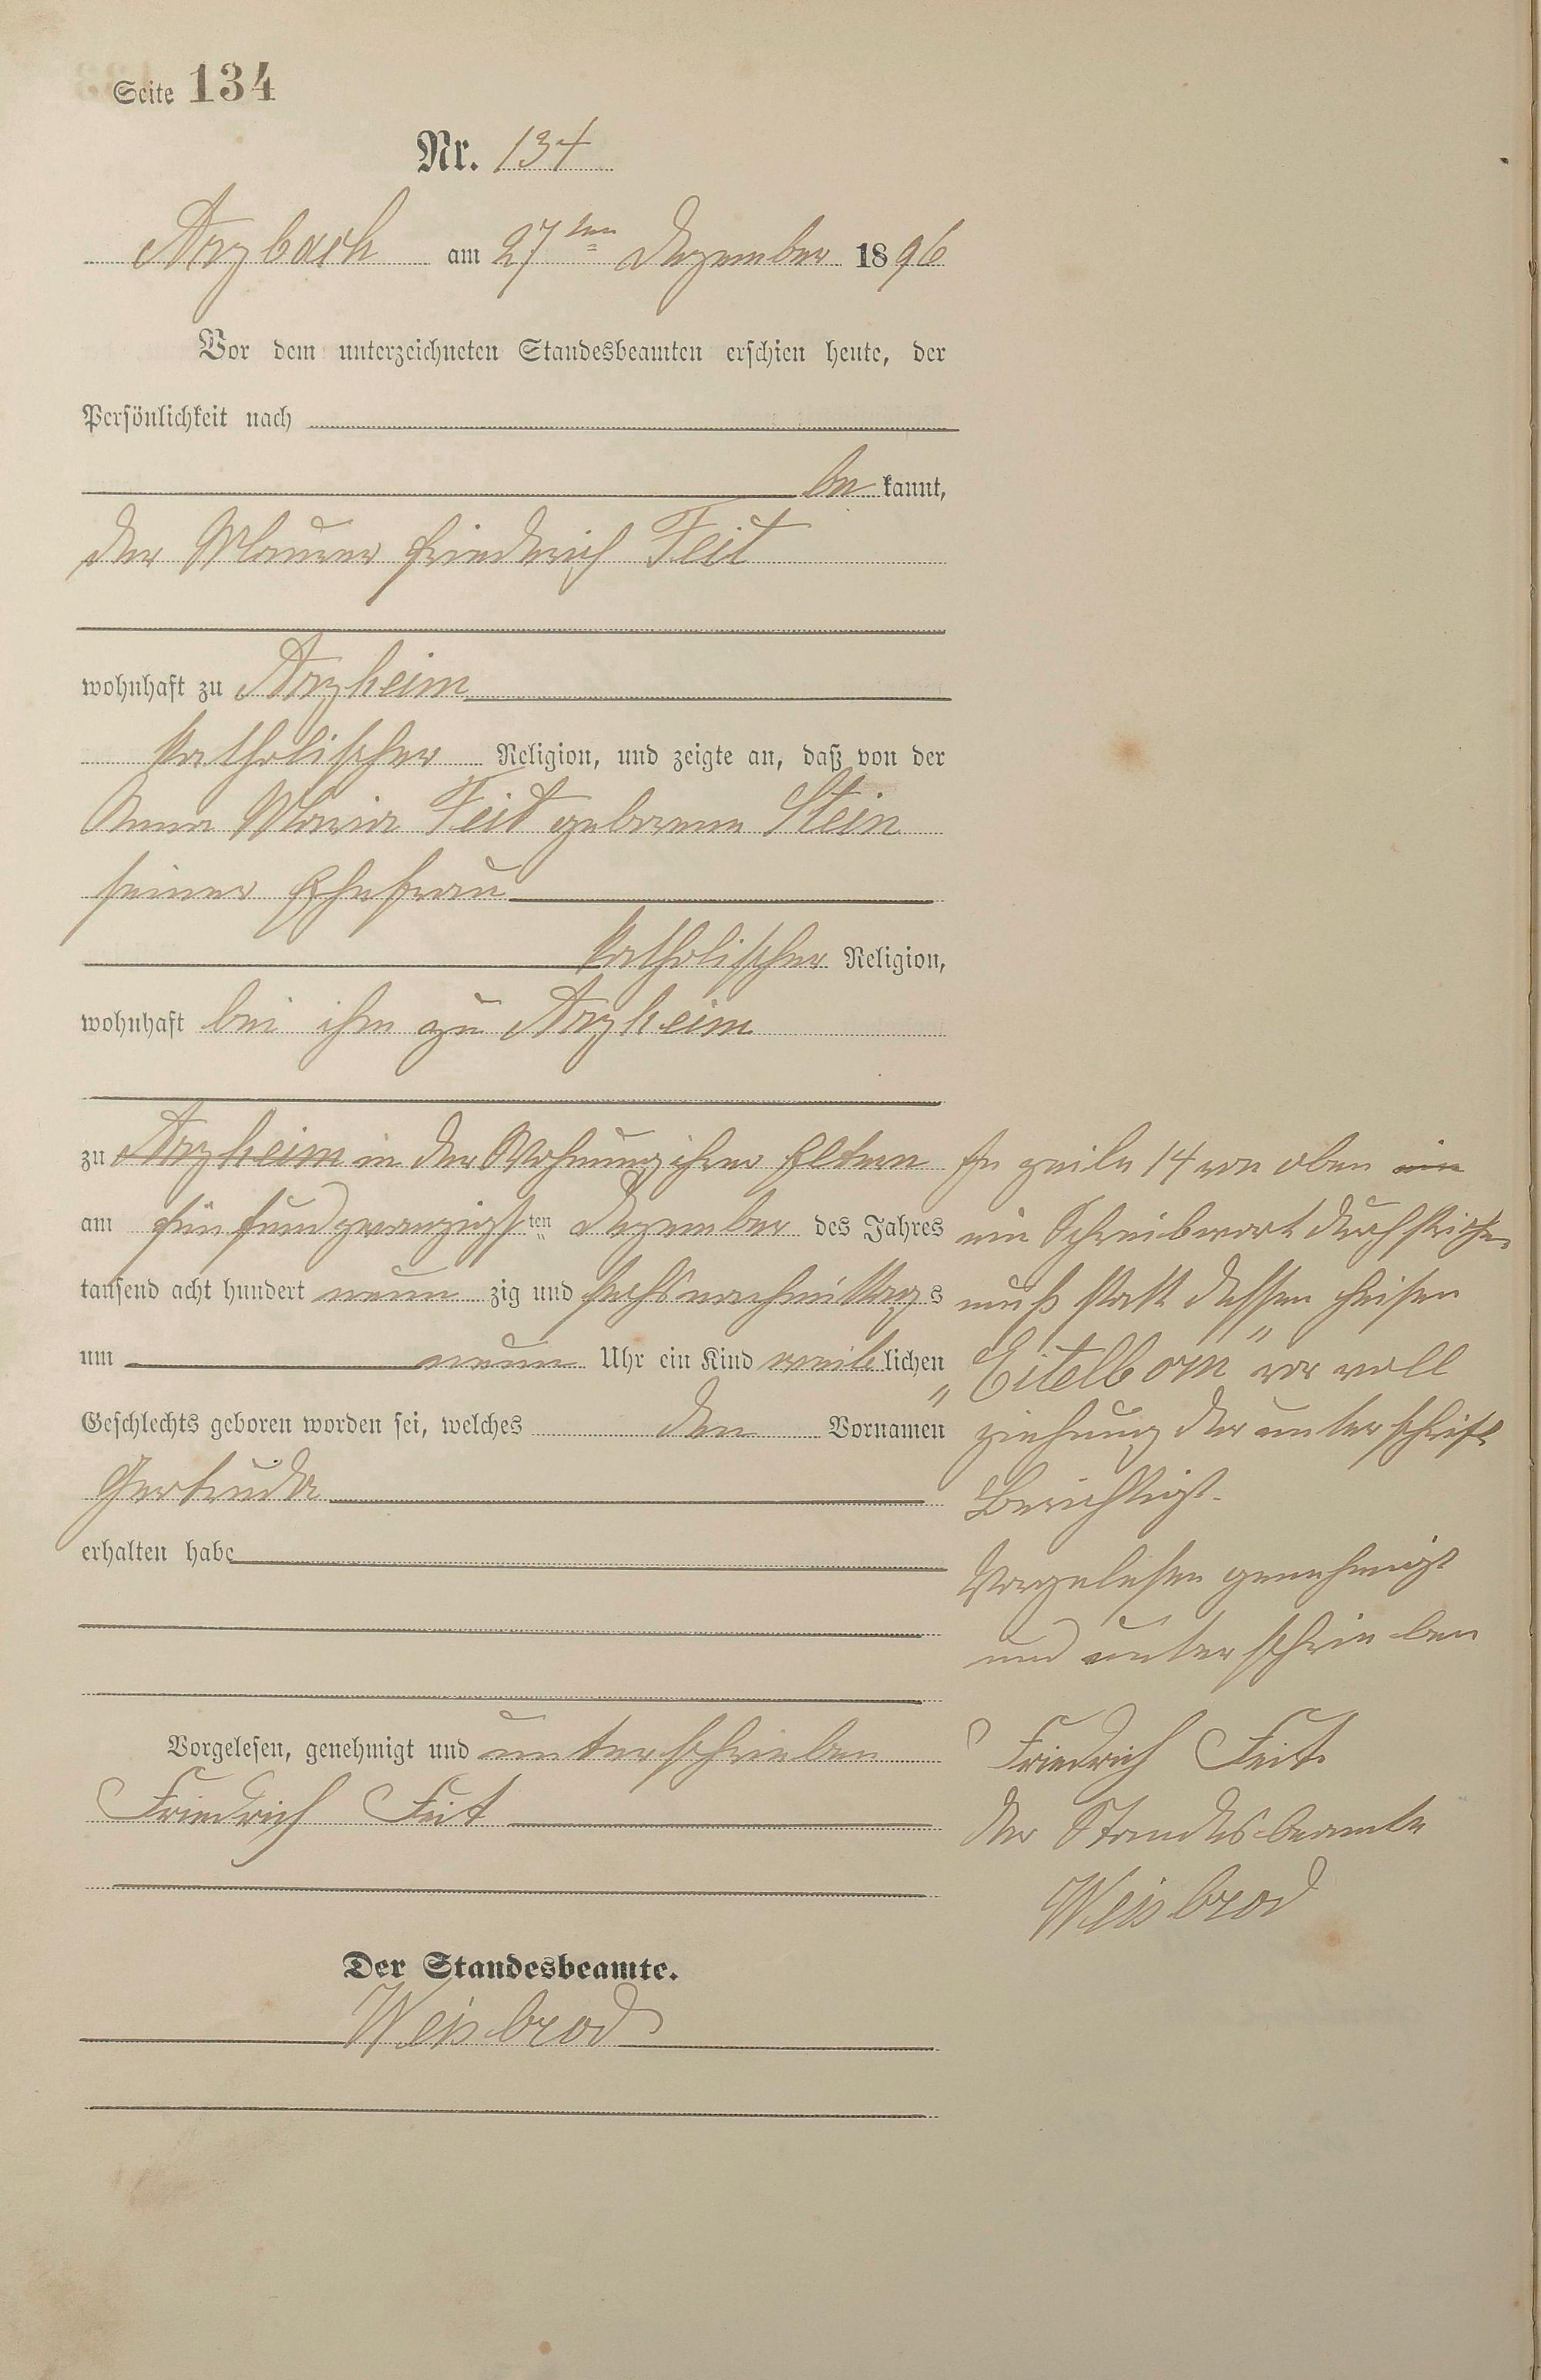 Seite 134
Nr. 134
Arzbach am 27ten Dezember 1896
Vor dem unterzeichneten Standesbeamten erschien heute, der
Persönlichkeit nach
be kannt,
der Maurer Friedrich Feit
wohnhaft zu Arzheim
katholischer Religion, und zeigte an, daß von der
Anna Maria Feit geborenen Stein
seiner Ehefrau
katholischer Religion,
wohnhaft bei ihm zu Arzheim
zu Arzheim in der Wohnung ihrer Eltern
am fünfundzwanzigsten Dezember des Jahres
tausend acht hundert neun zig und sechs nachmittags
um neun Uhr ein Kind weib lichen
Geschlechts geboren worden sei, welches den Vornamen
Gertruda
erhalten habe
Vorgelesen, genehmigt und unterschrieben
Friedrich Feit
Der Standesbeamte.
Weisbrod
In zeile 14 von oben ein
ein Schreibwort durchstrichen
muß statt dessen heisen
"Eitelborn" vor voll
ziehung der unterschrift
Berichtigt.
Vorgelesen genehmigt
und unterschrieben
Friedrich Feit
Der Standesbeamte
Weisbrod